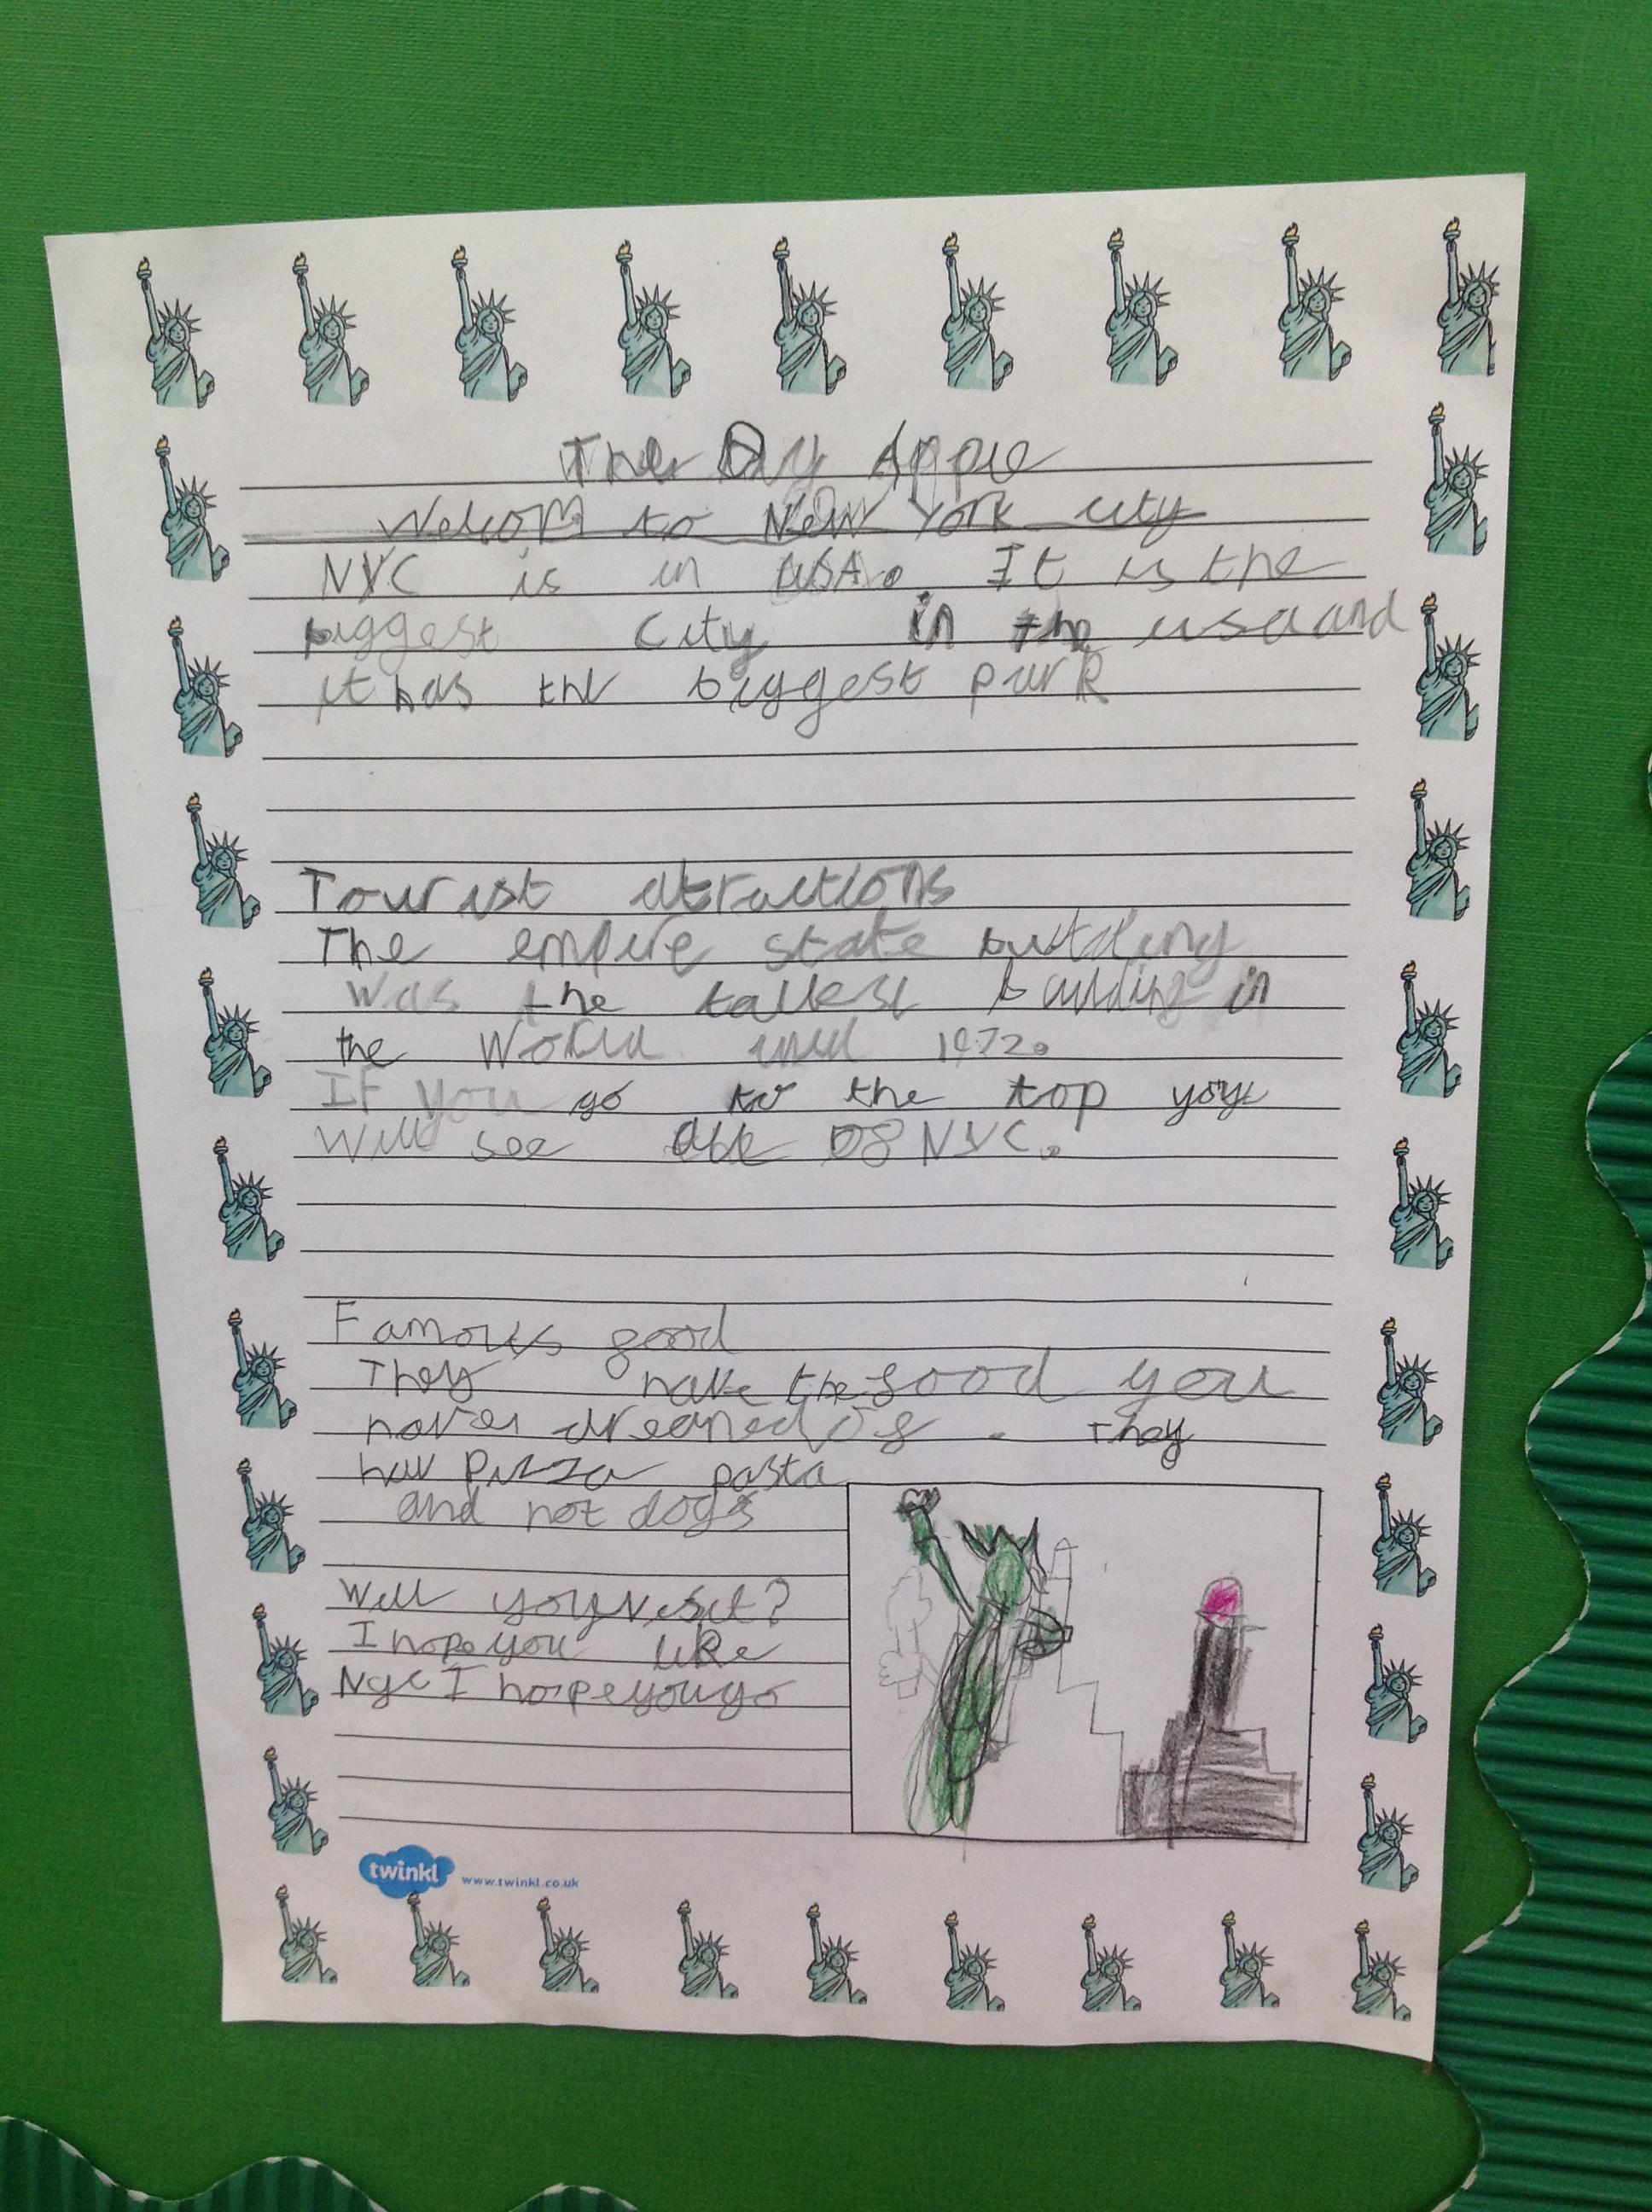 The Big Apple
Welcom to New York city
NYC is in USA. It is the
biggest city in the usa and
it has the biggest park
Tourist atractions
The empire state building
was the tallest building in
the World until 1972.
If you go to the top you
will see all of NYC.
Famous food
They make the food you
never dreamed of. They
hav pizza pasta
and hot dogs
Will you visit?
I hope you like
Nyc I hope you go
twinkl www.twinkl.co.uk